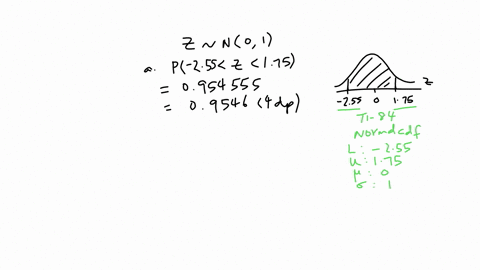 Z ~ N(0, 1)
a. P(-2.55 < Z < 1.75)
= 0.954555
= 0.9546 (4dp)
Z
-2.55 0 1.75
TI-84
Normalcdf
L: -2.55
u: 1.75
μ: 0
σ: 1